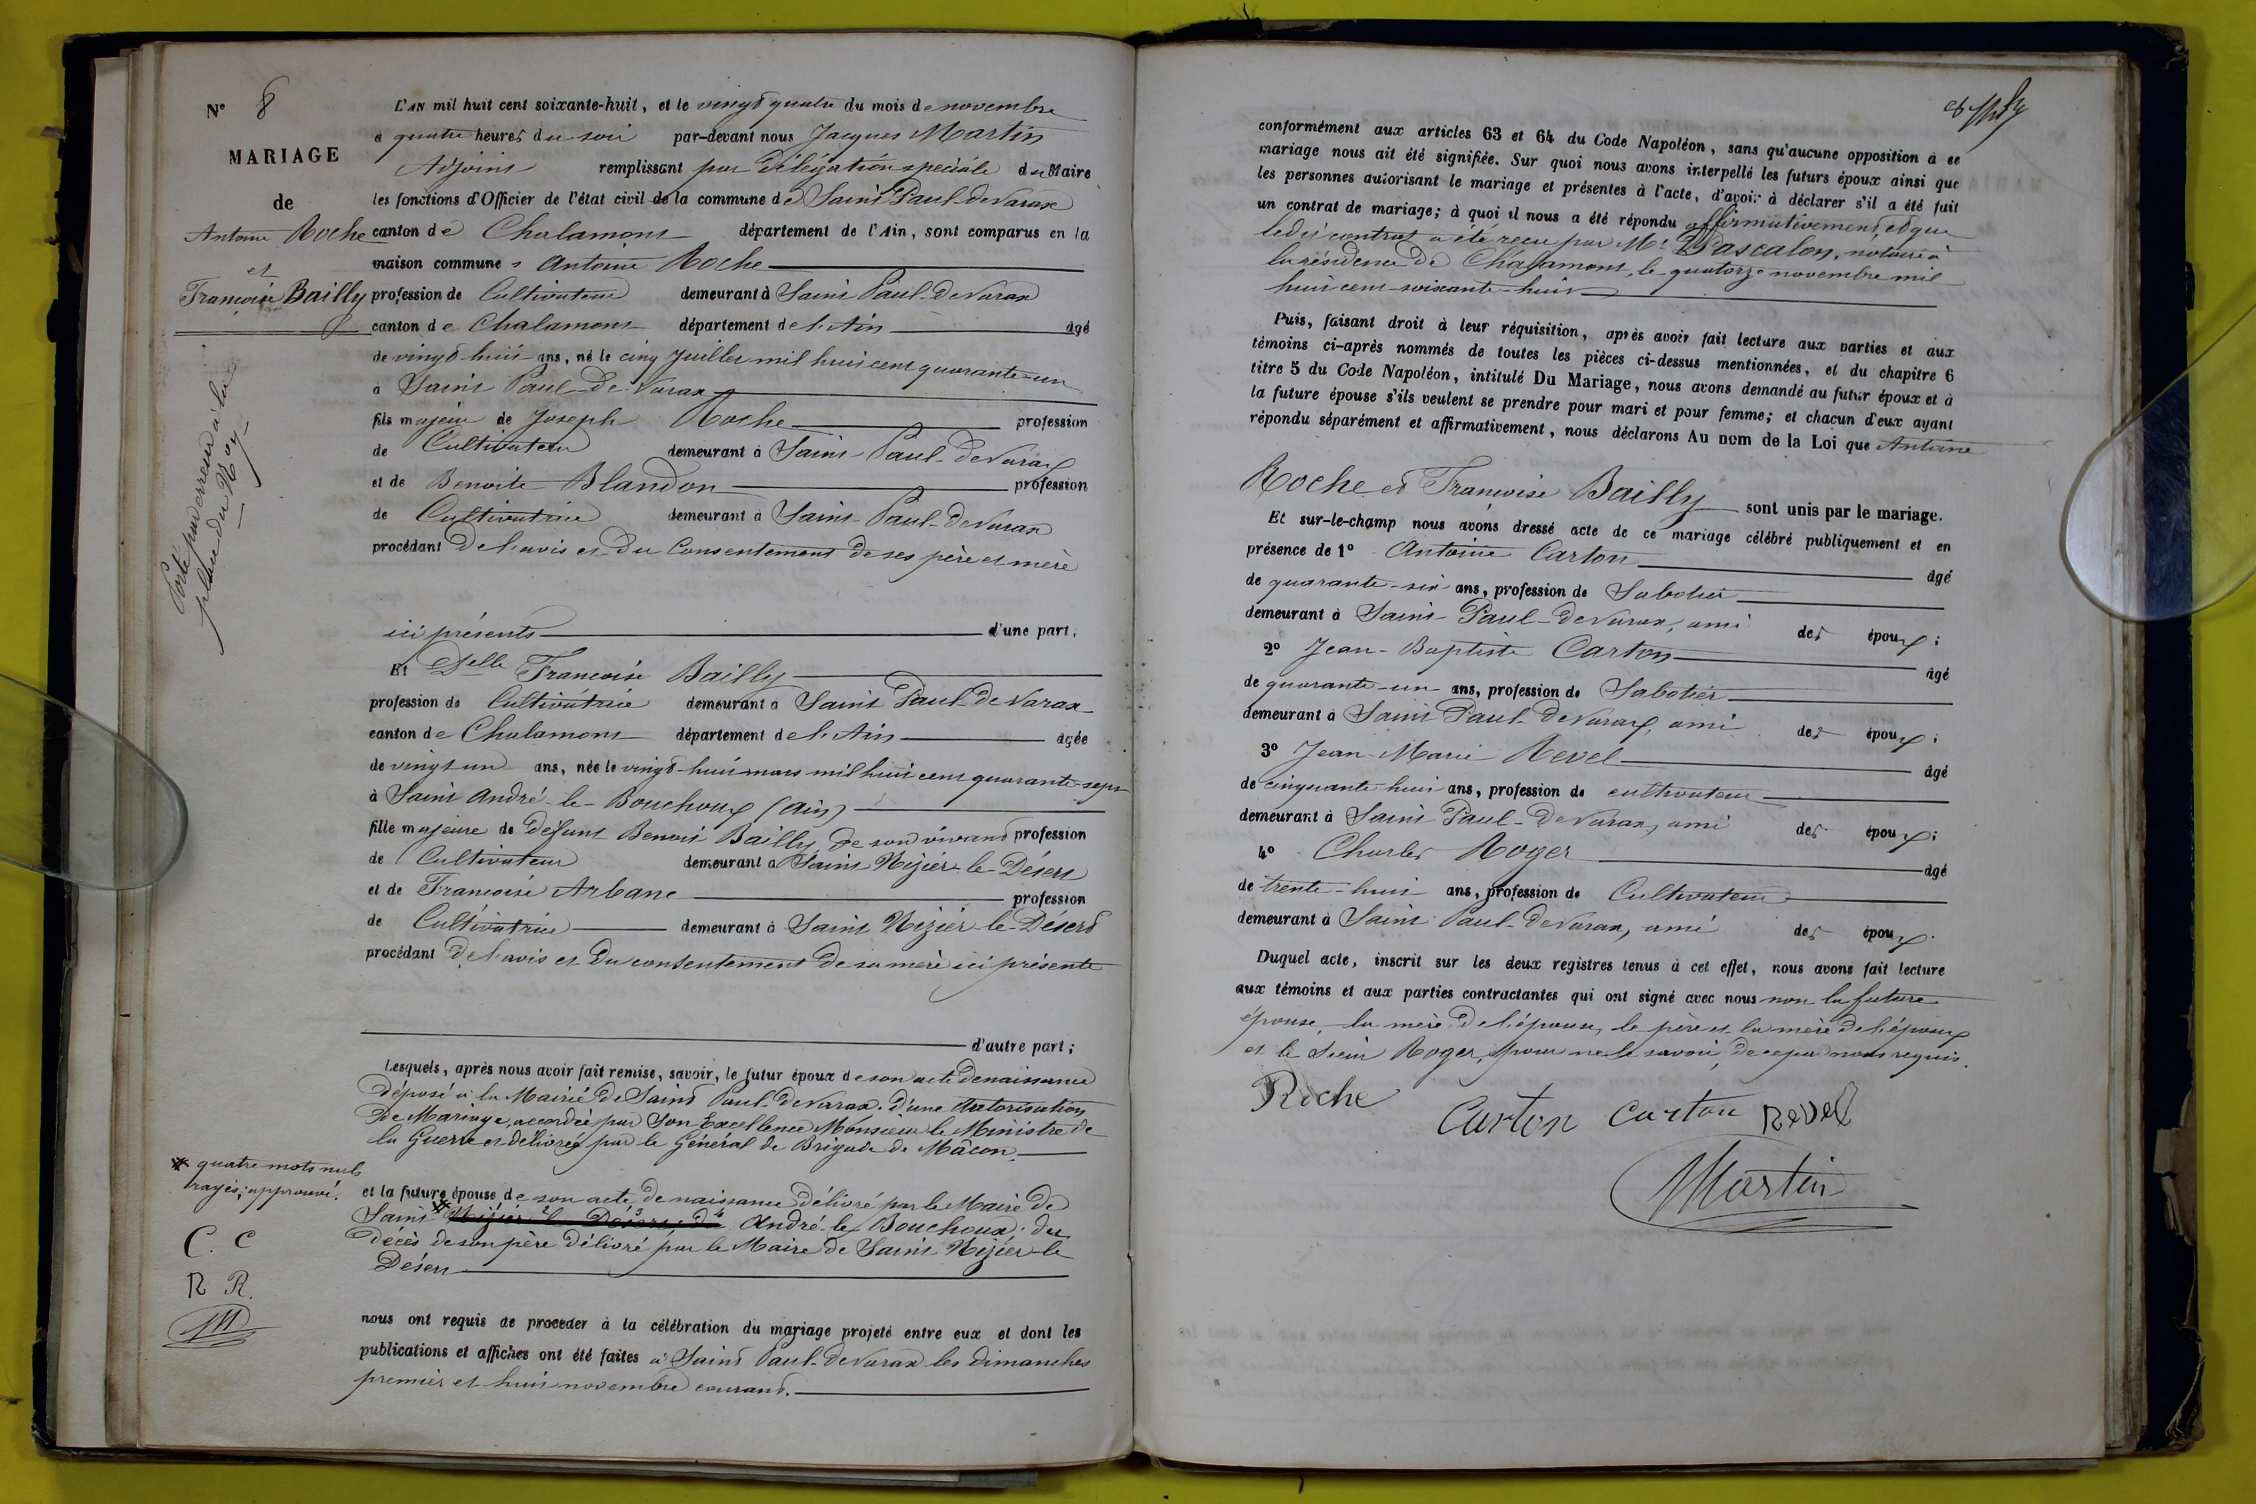 N° 8
MARIAGE
de
Antoine Roche
et
Françoise Bailly
Porté par erreur à la
place du N° 07
L'AN mil huit cent soixante-huit, et le vingt quatre du mois de novembre
à quatre heures du soir par-devant nous Jacques Martin
Adjoint remplissant par délégation spéciale du Maire
les fonctions d'Officier de l'état civil de la commune de Saint Paul de Varax
canton de Chalamont département de l'Ain, sont comparus en la
maison commune : Antoine Roche
profession de Cultivateur demeurant à Saint Paul-de Varax
canton de Chalamont département de l'Ain âgé
de vingt-huit ans, né le cinq Juillet mil huit cent quarante-un
à Saint Paul-de Varax
fils majeur de Joseph Roche profession
de Cultivateur demeurant à Saint-Paul-de Varax
et de Benoite Blandon profession
de Cultivatrice demeurant à Saint-Paul-de Varax
procédant de l'avis et du Consentement de ses père et mère
ici présents d'une part,
Et Delle Françoise Bailly
profession de Cultivatrice demeurant à Saint Paul-de Varax
canton de Chalamont département de l'Ain âgée
de vingt un ans, née le vingt-huit mars mil huit cent quarante-sept
à Saint André-le-Bouchoux (Ain)
fille majeure de défunt Benoit Bailly de son vivant profession
de Cultivateur demeurant à Saint Nizier-le-Désert
et de Françoise Arbane profession
de Cultivatrice demeurant à Saint Nizier-le-Désert
procédant de l'avis et du consentement de sa mère ici présente
d'autre part;
Lesquels, après nous avoir fait remise, savoir, le futur époux de son acte de naissance
déposé à la Mairie de Saint Paul de Varax. d'une Autorisation
de Mariage, accordée par Son Excellence Monsieur le Ministre de
la Guerre et délivrée par le Général de Brigade de Mâcon.
* quatre mots nuls
rayés; approuvé.
C. C
R R.
M
et la future épouse de son acte de naissance délivré par le Maire de
Saint * Nizier le Désert, d André-le Bouchoux; du
Décès de son père délivré par le Maire de Saint Nizier-le
Désert
nous ont requis de procéder à la célébration du mariage projeté entre eux et dont les
publications et affiches ont été faites à Saint Paul-de Varax les dimanches
premier et huit novembre courant.
conformément aux articles 63 et 64 du Code Napoléon, sans qu'aucune opposition à ce
mariage nous ait été signifiée. Sur quoi nous avons interpellé les futurs époux ainsi que
les personnes autorisant le mariage et présentes à l'acte, d'avoir à déclarer s'il a été fait
un contrat de mariage; à quoi il nous a été répondu affirmativement, et que
ledit contrat a été reçu par Me Pascalon, notaire à
la résidence de Chalamont, le quatorze novembre mil
huit cent-soixante-huit
Puis, faisant droit à leur réquisition, après avoir fait lecture aux parties et aux
témoins ci-après nommés de toutes les pièces ci-dessus mentionnées, et du chapitre 6
titre 5 du Code Napoléon, intitulé Du Mariage, nous avons demandé au futur époux et à
la future épouse s'ils veulent se prendre pour mari et pour femme; et chacun d'eux ayant
répondu séparément et affirmativement, nous déclarons Au nom de la Loi que Antoine
Roche et Françoise Bailly sont unis par le mariage.
Et sur-le-champ nous avons dressé acte de ce mariage célébré publiquement et en
présence de 1° Antoine Carton âgé
de quarante-six ans, profession de Sabotier
demeurant à Saint-Paul-de Varax, ami des époux;
2° Jean-Baptiste Carton âgé
de quarante-un ans, profession de Sabotier
demeurant à Saint Paul de Varax, ami des époux;
3° Jean-Marie Revel âgé
de cinquante-huit ans, profession de cultivateur
demeurant à Saint Paul-de Varax, ami des époux;
4° Charles Roger âgé
de trente-huit ans, profession de Cultivateur
demeurant à Saint Paul-de Varax, ami des époux.
Duquel acte, inscrit sur les deux registres tenus à cet effet, nous avons fait lecture
aux témoins et aux parties contractantes qui ont signé avec nous non la future
épouse, la mère de l'épouse, le père et la mère de l'époux
et le sieur Roger, pour ne le savoir, de ce par nous requis.
Roche
Carton Carton Revel
Martin